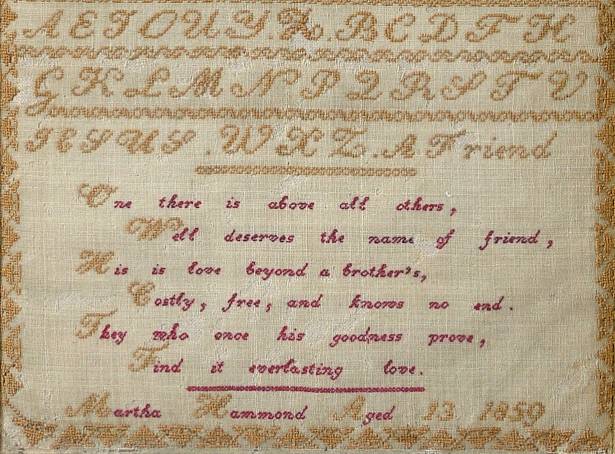 A E I O U Y. &. B C D F H
G K L M N P Q R S T V
JESUS. W X Z. A Friend
One there is above all others,
Well deserves the name of friend,
His is love beyond a brother's,
Costly, free, and knows no end.
They who once his goodness prove,
Find it everlasting love.
Martha Hammond Aged 13 1859